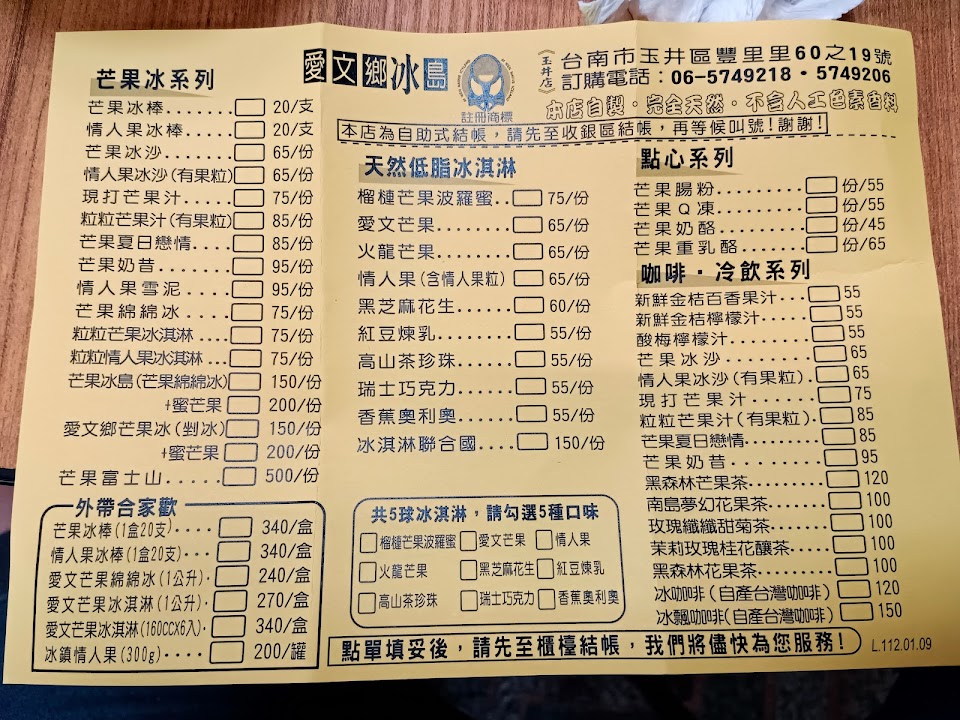 愛文鄉冰島
註冊商標
《玉井店》
台南市玉井區豐里里60之19號
訂購電話：06-5749218・5749206
本店自製・完全天然・不含人工色素香料
本店為自助式結帳，請先至收銀區結帳，再等候叫號！謝謝！
芒果冰系列
芒果冰棒....... 20/支
情人果冰棒..... 20/支
芒果冰沙....... 65/份
情人果冰沙(有果粒) 65/份
現打芒果汁..... 75/份
粒粒芒果汁(有果粒) 85/份
芒果夏日戀情.... 85/份
芒果奶昔....... 95/份
情人果雪泥..... 95/份
芒果綿綿冰.... 75/份
粒粒芒果冰淇淋.... 75/份
粒粒情人果冰淇淋... 75/份
芒果冰島(芒果綿綿冰) 150/份
+蜜芒果 200/份
愛文鄉芒果冰(剉冰) 150/份
+蜜芒果 200/份
芒果富士山..... 500/份
外帶合家歡
芒果冰棒(1盒20支).... 340/盒
情人果冰棒(1盒20支)... 340/盒
愛文芒果綿綿冰(1公升). 240/盒
愛文芒果冰淇淋(1公升). 270/盒
愛文芒果冰淇淋(160CCX6入). 340/盒
冰鎮情人果(300g).... 200/罐
天然低脂冰淇淋
榴槤芒果波羅蜜.. 75/份
愛文芒果........ 65/份
火龍芒果........ 65/份
情人果(含情人果粒) 65/份
黑芝麻花生...... 60/份
紅豆煉乳........ 55/份
高山茶珍珠...... 55/份
瑞士巧克力...... 55/份
香蕉奧利奧...... 55/份
冰淇淋聯合國.... 150/份
共5球冰淇淋，請勾選5種口味
榴槤芒果波羅蜜 愛文芒果 情人果
火龍芒果 黑芝麻花生 紅豆煉乳
高山茶珍珠 瑞士巧克力 香蕉奧利奧
點心系列
芒果腸粉......... 份/55
芒果Q凍......... 份/55
芒果奶酪......... 份/45
芒果重乳酪....... 份/65
咖啡・冷飲系列
新鮮金桔百香果汁... 55
新鮮金桔檸檬汁..... 55
酸梅檸檬汁........ 55
芒果冰沙......... 65
情人果冰沙(有果粒). 65
現打芒果汁....... 75
粒粒芒果汁(有果粒). 85
芒果夏日戀情......... 85
芒果奶昔........ 95
黑森林芒果茶....... 120
南島夢幻花果茶..... 100
玫瑰纖纖甜菊茶.... 100
茉莉玫瑰桂花釀茶.... 100
黑森林花果茶....... 100
冰咖啡(自產台灣咖啡) 120
冰飄咖啡(自產台灣咖啡) 150
點單填妥後，請先至櫃檯結帳，我們將儘快為您服務！
L.112.01.09